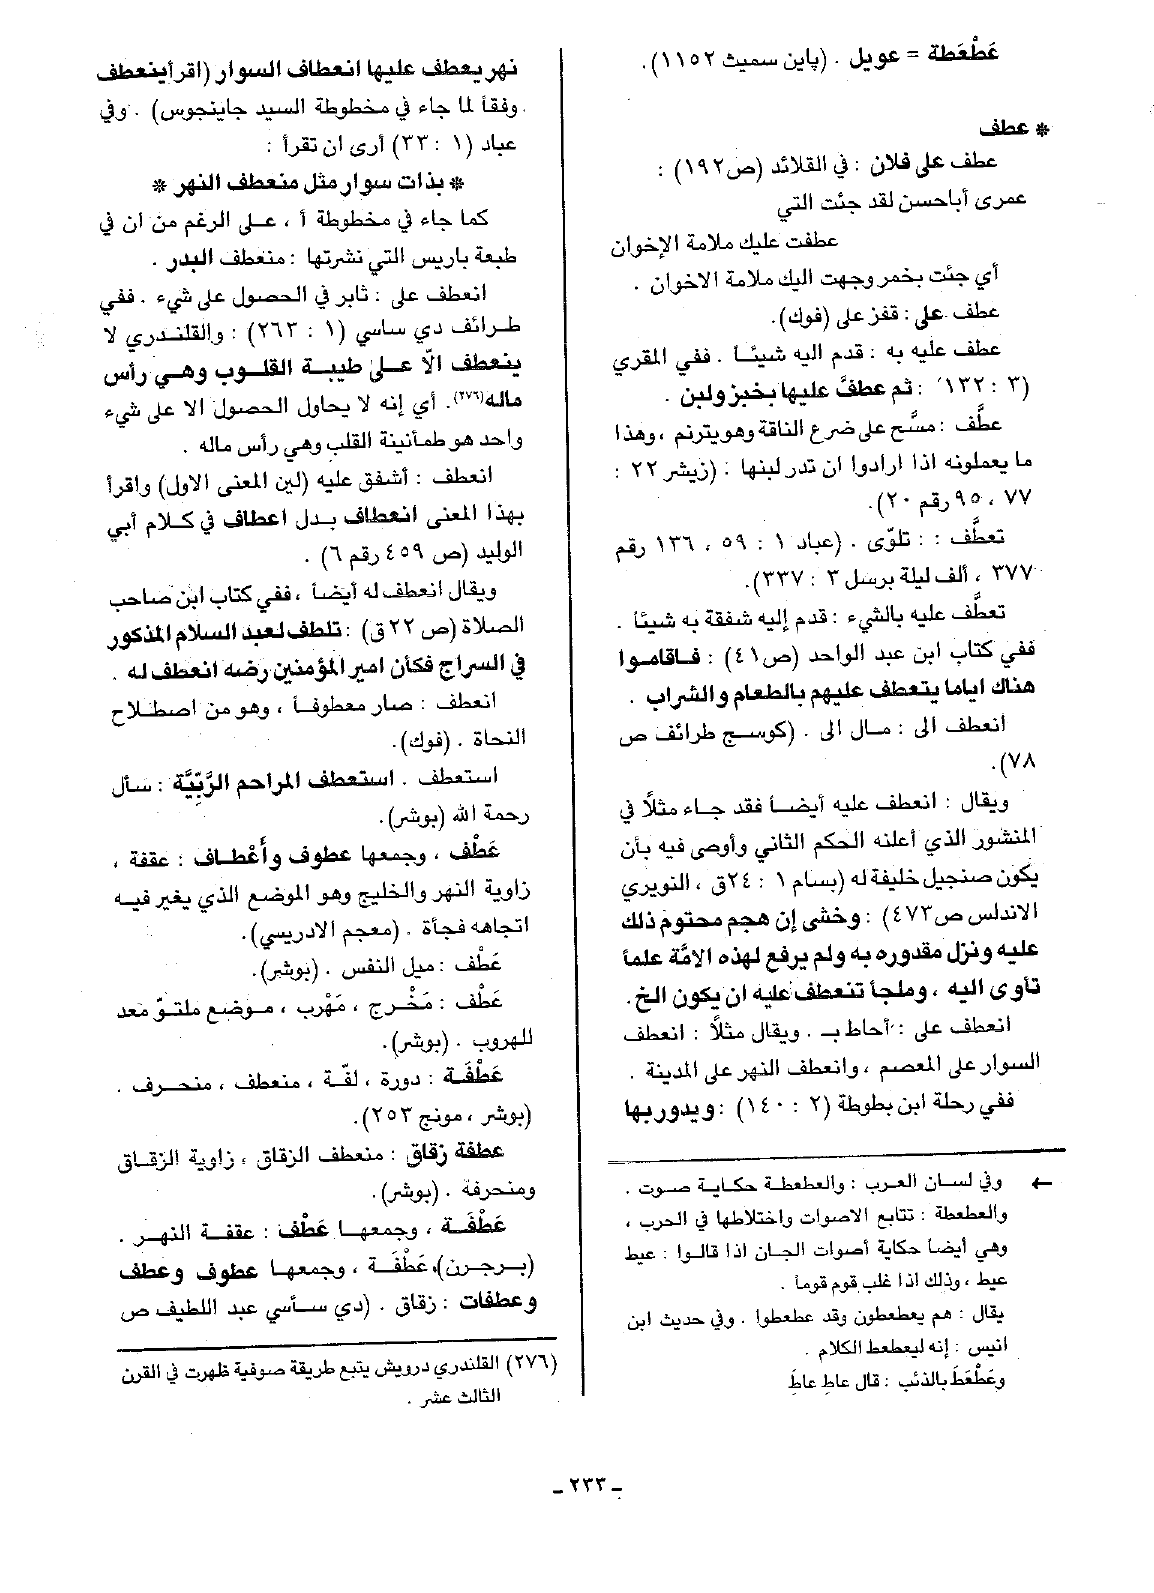 عَطْعَطة = عويل . (پاين سميث ١١٥٢).
* عطف
عطف على فلان : في القلائد (ص١٩٢) :
عمرى أباحسن لقد جئت التي
عطفت عليك ملامة الإخوان
أي جئت بخمر وجهت اليك ملامة الاخوان .
عطف على : قفز على (فوك).
عطف عليه به : قدم اليه شيئاً . ففي المقري
(٣ : ١٣٢ : ثم عطفَّ عليها بخبز ولبن .
عطَّف : مسَّح على ضرع الناقة وهو يترنم ، وهذا
ما يعملونه اذا ارادوا ان تدر لبنها : (زيشر ٢٢ :
٧٧ ، ٩٥ رقم ٢٠).
تعطَّف : : تلوّى . (عباد ١ : ٥٩ ، ١٣٦ رقم
٣٧٧ ، ألف ليلة برسل ٣ : ٣٣٧).
تعطَّف عليه بالشيء : قدم إليه شفقة به شيئاً .
ففي كتاب ابن عبد الواحد (ص٤١) : فاقاموا
هناك اياما يتعطف عليهم بالطعام والشراب .
أنعطف الى : مال الى . (كوسج طرائف ص
٧٨).
ويقال : انعطف عليه أيضاً فقد جاء مثلاً في
المنشور الذي أعلنه الحكم الثاني وأوصى فيه بأن
يكون صنجيل خليفة له (بسام ١ : ٢٤ق ، النويري
الاندلس ص٤٧٣) : وخشى إن هجم محتوم ذلك
عليه ونزل مقدوره به ولم يرفع لهذه الامَّة علماً
تأوى اليه ، وملجأ تنعطف عليه ان يكون الخ .
انعطف على : أحاط بـ . ويقال مثلاً : انعطف
السوار على المعصم ، وانعطف النهر على المدينة .
ففي رحلة ابن بطوطة (٢ : ١٤٠) : ويدوربها
← وفي لسان العرب : والعطعطة حكاية صوت .
والعطعطة : تتابع الاصوات واختلاطها في الحرب ،
وهي أيضا حكاية أصوات الجان اذا قالوا : عيط
عيط ، وذلك اذا غلب قوم قوماً .
يقال : هم يعطعطون وقد عطعطوا . وفي حديث ابن
انيس : إنه ليعطعط الكلام .
وعَطْعَطَ بالذئب : قال عاطِ عاطِ
نهر يعطف عليها انعطاف السوار (اقرأ ينعطف
وفقاً لما جاء في مخطوطة السيد جاينجوس) . وفي
عباد (١ : ٣٣) أرى ان تقرأ :
* بذات سوار مثل منعطف النهر *
كما جاء في مخطوطة أ ، على الرغم من ان في
طبعة باريس التي نشرتها : منعطف البدر .
انعطف على : ثابر في الحصول على شيء . ففي
طرائف دي ساسي (١ : ٢٦٣) : والقلندري لا
ينعطف الاّ على طيبة القلوب وهي رأس
ماله(٢٧٦). أي إنه لا يحاول الحصول الا على شيء
واحد هو طمأنينة القلب وهي رأس ماله .
انعطف : أشفق عليه (لين المعنى الاول) واقرأ
بهذا المعنى انعطاف بدل اعطاف في كلام أبي
الوليد (ص ٤٥٩ رقم ٦) .
ويقال انعطف له أيضاً ، ففي كتاب ابن صاحب
الصلاة (ص ٢٢ق) : تلطف لعبد السلام المذكور
في السراج فكأن امير المؤمنين رضه انعطف له .
انعطف : صار معطوفاً ، وهو من اصطلاح
النحاة . (فوك).
استعطف . استعطف المراحم الرَّبِّيَّة : سأل
رحمة الله (بوشر).
عَطْف ، وجمعها عطوف وأَعْطاف : عقفة ،
زاوية النهر والخليج وهو الموضع الذي يغير فيه
اتجاهه فجأة . (معجم الادريسي).
عَطْف : ميل النفس . (بوشر).
عَطْف : مَخْرج ، مَهْرب ، موضع ملتوّ معد
للهروب . (بوشر).
عَطْفَة : دورة ، لفّة ، منعطف ، منحرف .
(بوشر ، مونج ٢٥٣).
عطفة زقاق : منعطف الزقاق ، زاوية الزقاق
ومنحرفة . (بوشر).
عَطْفَة ، وجمعها عَطْف : عقفة النهر .
(برجرن)، عَطْفَة ، وجمعها عطوف وعطف
وعطفات : زقاق . (دي ساسي عبد اللطيف ص
(٢٧٦) القلندري درويش يتبع طريقة صوفية ظهرت في القرن
الثالث عشر .
ـ ٢٣٣ ـ